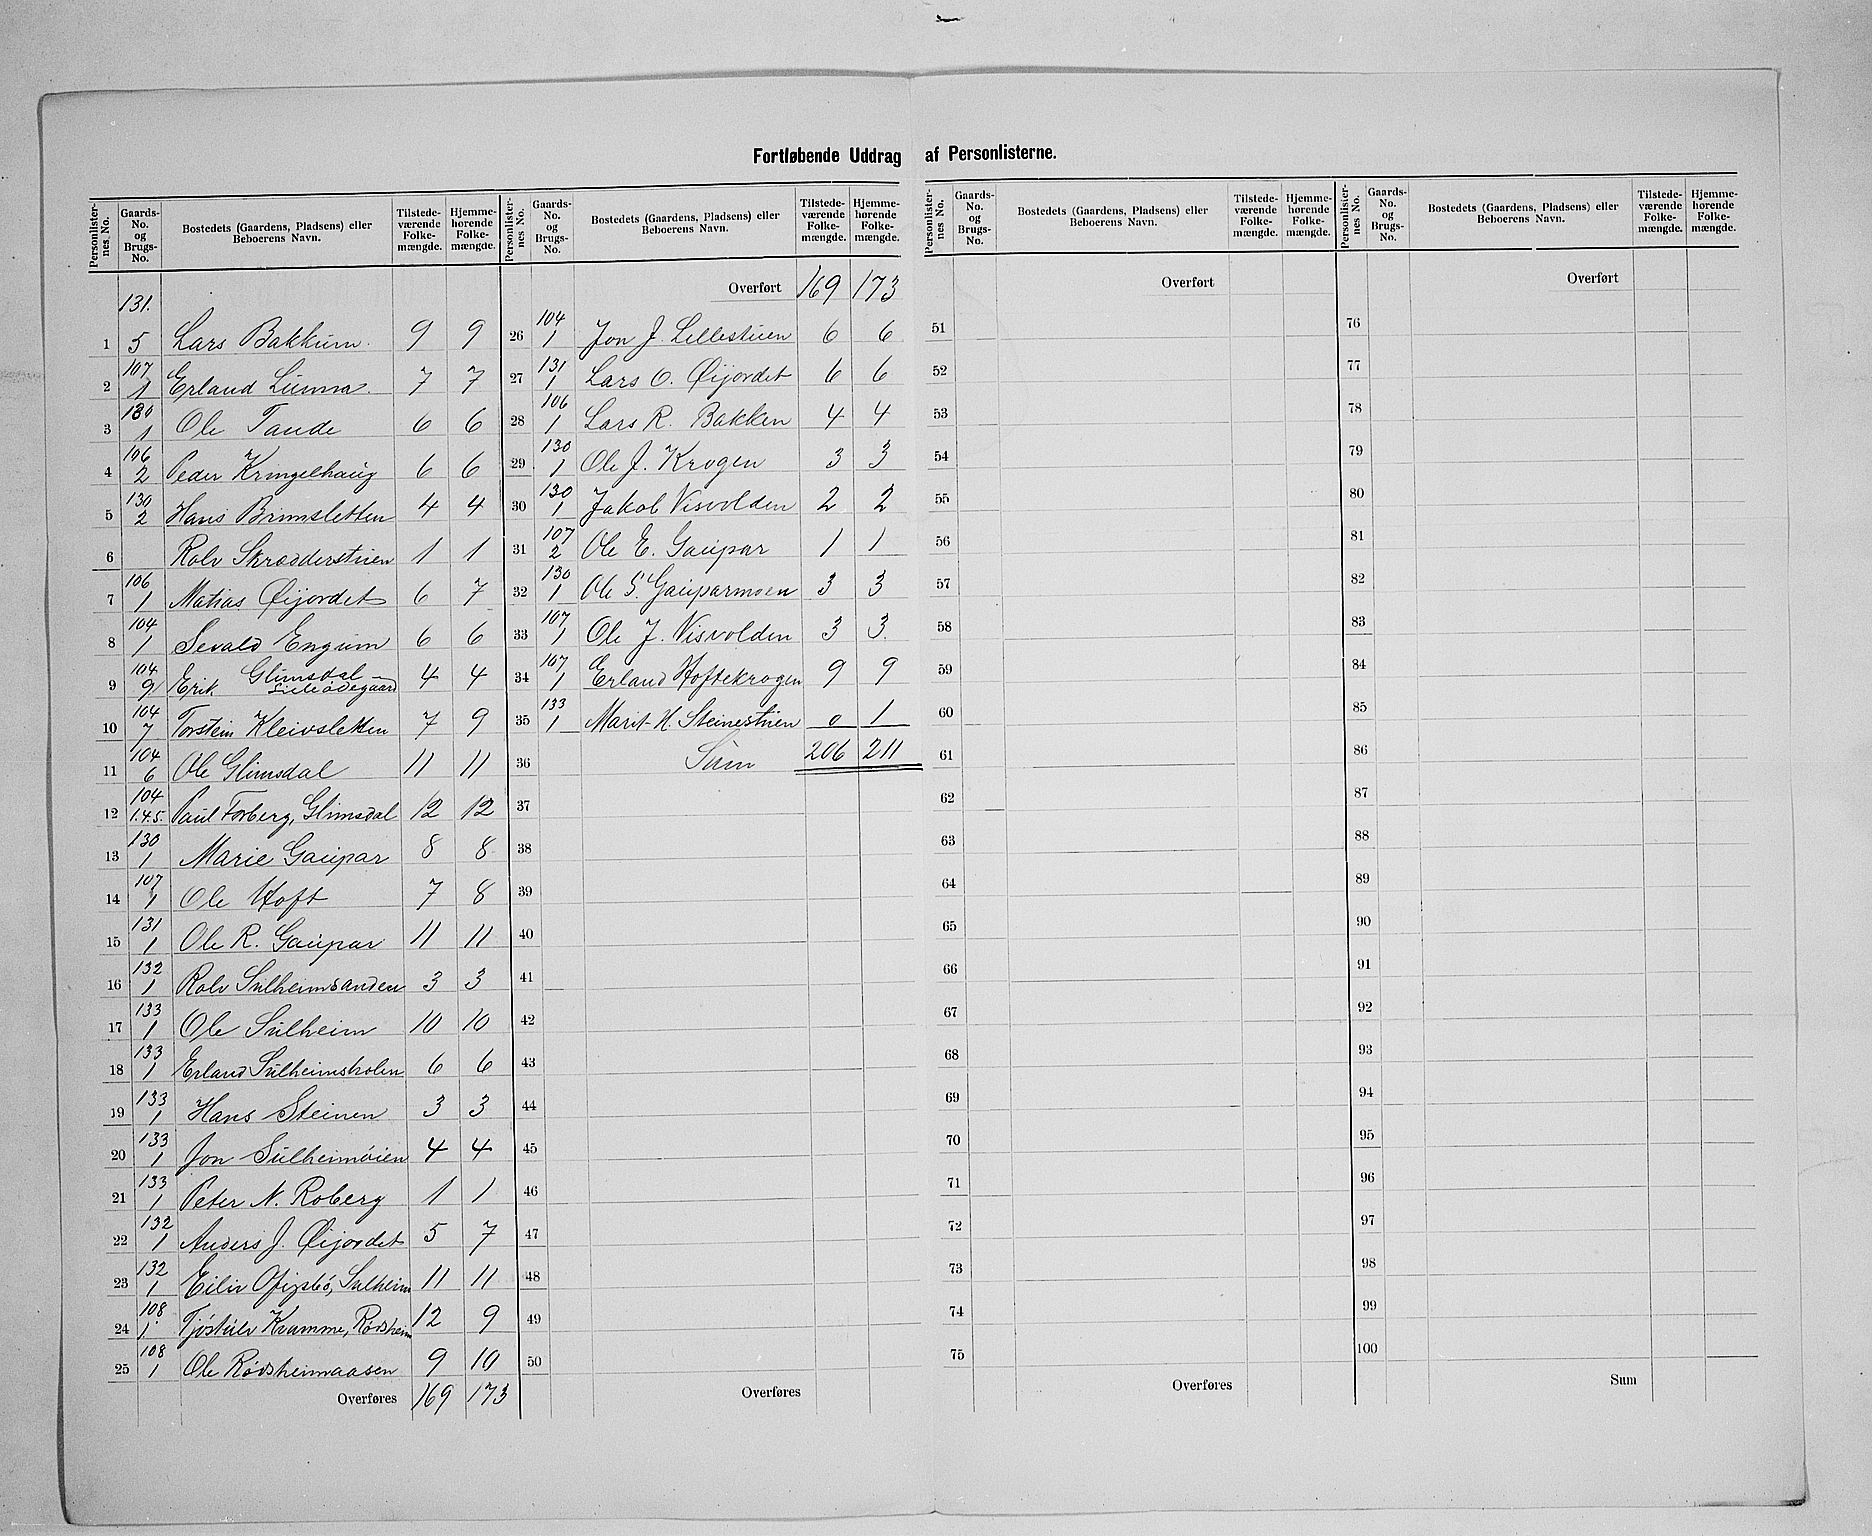 Fortløbende Uddrag af Personlisterne.
Personlisternes No. | Gaards-No. og Brugs-No. | Bostedets (Gaardens, Pladsens) eller Beboerens Navn. | Tilstedeværende Folkemængde. | Hjemmehørende Folkemængde.
1 | 131. 5 | Lars Bakkum. | 9 | 9
2 | 107 1 | Erland Lunna. | 7 | 7
3 | 130 1 | Ole Taude | 6 | 6
4 | 106 2 | Peder Kringelhaug | 6 | 6
5 | 130 2 | Hans Brimsletten | 4 | 4
6 | Rolv Skrædderstuen | 1 | 1
7 | 106 1 | Matias Øijordet | 6 | 7
8 | 104 1 | Sevald Engum | 6 | 6
9 | 104 9 | Erik Glimsdal Lilleødegaard | 4 | 4
10 | 104 7 | Torstein Kleivsletten | 7 | 9
11 | 104 6 | Ole Glimsdal | 11 | 11
12 | 104 1.4.5. | Paul Forberg, Glimsdal | 12 | 12
13 | 130 1 | Marie Gaupar | 8 | 8
14 | 107 1 | Ole Hoft | 7 | 8
15 | 131 1 | Ole R. Gaupar | 11 | 11
16 | 132 1 | Rolv Sulheimsanden | 3 | 3
17 | 133 1 | Ole Sulheim | 10 | 10
18 | 133 1 | Erland Sulheimsholen | 6 | 6
19 | 133 1 | Hans Steinen | 3 | 3
20 | 133 1 | Jon Sulheimøien | 4 | 4
21 | 133 1 | Peter N. Roberg | 1 | 1
22 | 132 1 | Anders J. Øijordet | 5 | 7
23 | 132 1 | Eiliv Ofigsbø, Sulheim | 11 | 11
24 | 108 1 | Tjøstulv Kramme, Rødsheim | 12 | 9
25 | 108 1 | Ole Rødsheimaasen | 9 | 10
Overføres | 169 | 173
Personlisternes No. | Gaards-No. og Brugs-No. | Bostedets (Gaardens, Pladsens) eller Beboerens Navn. | Tilstedeværende Folkemængde. | Hjemmehørende Folkemængde.
Overført | 169 | 173
26 | 104 1 | Jon J. Lillestuen | 6 | 6
27 | 131 1 | Lars O. Øijordet | 6 | 6
28 | 106 1 | Lars R. Bakken | 4 | 4
29 | 130 1 | Ole J. Krogen | 3 | 3
30 | 130 1 | Jakob Visvolden | 2 | 2
31 | 107 2 | Ole E. Gaupar | 1 | 1
32 | 130 1 | Ole S. Gauparmoen | 3 | 3
33 | 107 1 | Ole J. Visvolden | 3 | 3.
34 | 107 1 | Erland Hoftekrogen | 9 | 9
35 | 133 1 | Marit H. Steinestuen | 0 | 1
36 | Sum | 206 | 211
37
38
39
40
41
42
43
44
45
46
47
48
49
50
Overføres
Personlisternes No. | Gaards-No. og Brugs-No. | Bostedets (Gaardens, Pladsens) eller Beboerens Navn. | Tilstedeværende Folkemængde. | Hjemmehørende Folkemængde.
Overført
51
52
53
54
55
56
57
58
59
60
61
62
63
64
65
66
67
68
69
70
71
72
73
74
75
Overføres
Personlisternes No. | Gaards-No. og Brugs-No. | Bostedets (Gaardens, Pladsens) eller Beboerens Navn. | Tilstedeværende Folkemængde. | Hjemmehørende Folkemængde.
Overført
76
77
78
79
80
81
82
83
84
85
86
87
88
89
90
91
92
93
94
95
96
97
98
99
100
Sum